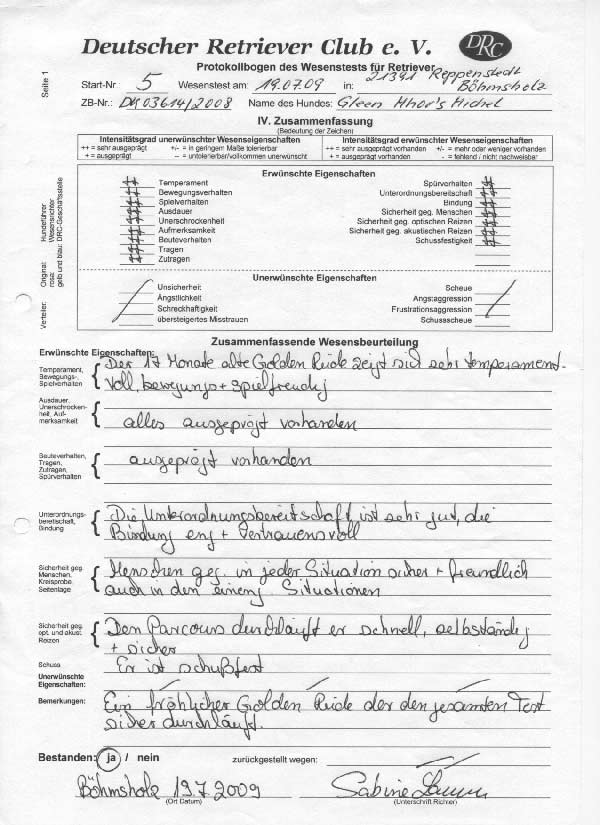 Deutscher Retriever Club e. V.
DRC
Protokollbogen des Wesenstests für Retriever
Seite 1
Start-Nr 5 Wesenstest am: 19.07.09 in: 21391 Reppenstedt Böhmsholz
ZB-Nr.: DK03614/2008 Name des Hundes: Gleen Mhor's Michel
IV. Zusammenfassung
(Bedeutung der Zeichen)
Intensitätsgrad unerwünschter Wesenseigenschaften
++ = sehr ausgeprägt +/- = in geringem Maße tolerierbar
+ = ausgeprägt – = untolerierbar/vollkommen unerwünscht
Intensitätsgrad erwünschter Wesenseigenschaften
++ = sehr ausgeprägt vorhanden +/- = mehr oder weniger vorhanden
+ = ausgeprägt vorhanden - = fehlend / nicht nachweisbar
Verteiler: Original: Hundeführer
rosa: Wesensrichter
gelb und blau: DRC-Geschäftsstelle
Erwünschte Eigenschaften
++ Temperament
++ Bewegungsverhalten
++ Spielverhalten
++ Ausdauer
++ Unerschrockenheit
++ Aufmerksamkeit
++ Beuteverhalten
++ Tragen
++ Zutragen
Spürverhalten ++
Unterordnungsbereitschaft ++
Bindung ++
Sicherheit geg. Menschen ++
Sicherheit geg. optischen Reizen ++
Sicherheit geg. akustischen Reizen ++
Schussfestigkeit ++
Unerwünschte Eigenschaften
Unsicherheit
Ängstlichkeit
Schreckhaftigkeit
übersteigertes Misstrauen
Scheue
Angstaggression
Frustrationsaggression
Schussscheue
Zusammenfassende Wesensbeurteilung
Erwünschte Eigenschaften:
Temperament, Bewegungs-, Spielverhalten
Der 17 Monate alte Golden Rüde zeigt sich sehr temperament-
voll, bewegungs + spielfreudig
Ausdauer, Unerschrocken-heit, Auf-merksamkeit
alles ausgeprägt vorhanden
Beuteverhalten, Tragen, Zutragen, Spürverhalten
ausgeprägt vorhanden
Unterordnungs-bereitschaft, Bindung
Die Unterordnungsbereitschaft ist sehr gut, die
Bindung eng + vertrauensvoll
Sicherheit geg. Menschen, Kreisprobe, Seitenlage
Menschen geg. in jeder Situation sicher + freundlich
auch in den Situationen
Sicherheit geg. opt. und akust. Reizen
Den Parcours durchläuft er schnell, selbständig
+ sicher
Schuss
Er ist schußfest
Unerwünschte Eigenschaften:
Bemerkungen:
Ein fröhlicher Golden Rüde der den gesamten Test
sicher durchläuft.
Bestanden: ja / nein zurückgestellt wegen:
Böhmsholz 19.7.2009
(Ort Datum)
Sabine
(Unterschrift Richter)